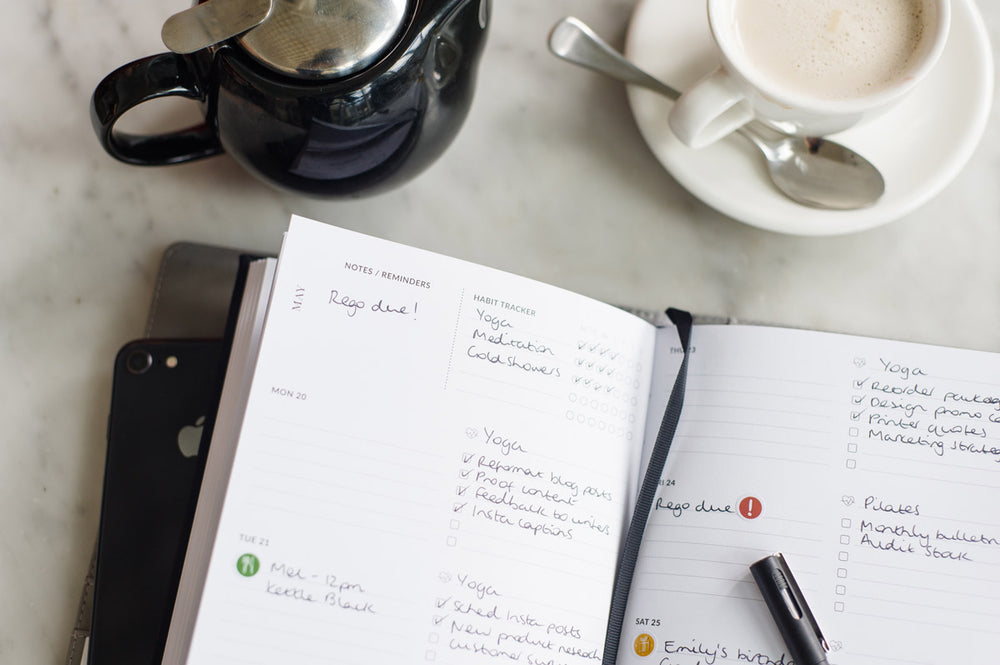 MAY
NOTES / REMINDERS
Rego due!
HABIT TRACKER
Yoga
Meditation
Cold showers
MON 20
Yoga
Reformat blog posts
Proof content
Feedback to writers
Insta captions
TUE 21
Mel - 12pm
Kettle Black
Yoga
Sched Insta posts
New product research
Customer
THU 23
Yoga
Reorder
Design promo
Printer quotes
Marketing
24
Rego due !
Pilates
Monthly
Audit Stock
SAT 25
Emily's